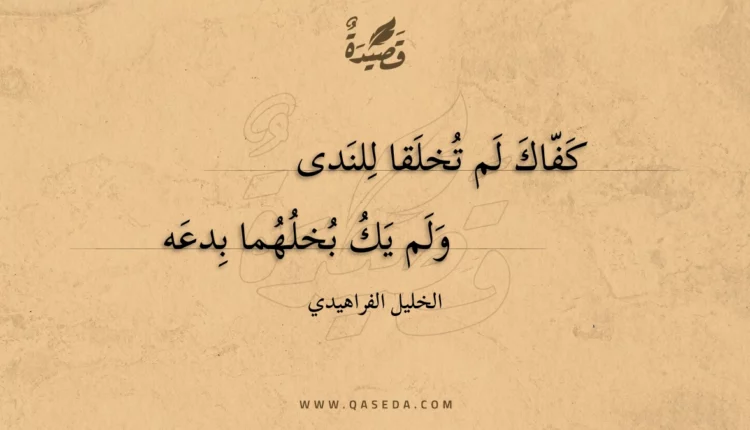 قَصِيْدَةٌ
كَفّاكَ لَم تُخلَقا لِلنَدى
وَلَم يَكُ بُخلُهُما بِدعَه
الخليل الفراهيدي
WWW.QASEDA.COM